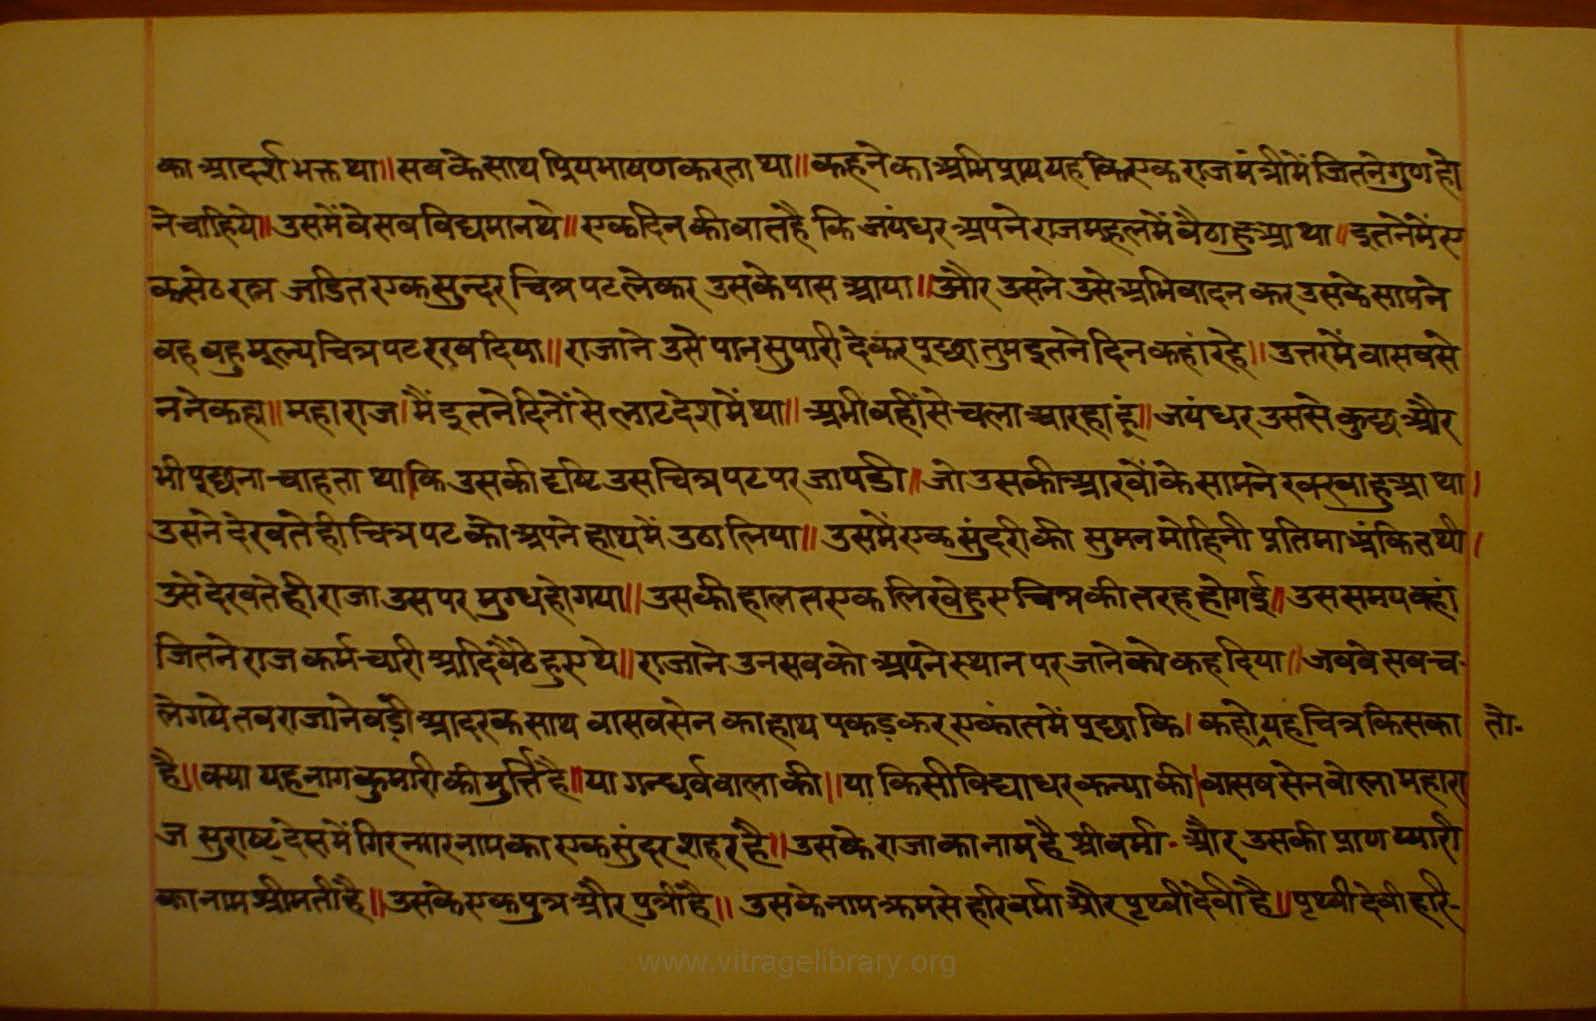 का आदर्श भक्त था॥ सब के साथ प्रियभाषण करता था॥ कहने का अभिप्राय यह कि एक राज मंत्री में जितने गुण हो
ने चाहिये॥ उसमें वे सब विद्यमान थे॥ एक दिन की बात है कि जयंधर अपने राज महल में बैठा हुआ था॥ इतने में ए
क सेठ रत्न जडित एक सुन्दर चित्र पट लेकर उसके पास आया॥ और उसने उसे अभिवादन कर उसके सामने
वह बहु मूल्य चित्र पट रख दिया॥ राजाने उसे पान सुपारी देकर पूछा तुम इतने दिन कहां रहे॥ उत्तर में वासवसे
न ने कहा॥ महाराज। मैं इतने दिनों से लाट देश में था॥ अभी वहीं से चला आ रहा हूं॥ जयंधर उससे कुछ और
भी पूछना चाहता था कि उसकी दृष्टि उस चित्र पट पर जा पडी॥ जो उसकी आखों के सामने रक्खा हुआ था।
उसने देखते ही चित्र पट को अपने हाथ में उठा लिया॥ उसमें एक सुंदरी की सुमन मोहिनी प्रतिमा अंकित थी।
उसे देखते ही राजा उस पर मुग्ध हो गया॥ उसकी हालत एक लिखे हुए चित्र की तरह हो गई॥ उस समय वहां
जितने राज कर्मचारी आदि बैठे हुए थे॥ राजाने उन सब को अपने स्थान पर जाने को कह दिया॥ जब वे सब च-
ले गये तब राजाने बड़ी आदरक साथ वासवसेन का हाथ पकड़ कर एकांत में पूछा कि। कहो यह चित्र किसका तो-
है॥ क्या यह नाग कुमारी की मुर्त्ति है॥ या गन्धर्व बाला की॥ या किसी विद्याधर कन्या की। वासवसेन बोला महारा
ज सुराष्ट्र देस में गिरनार नाम का एक सुंदर शहर है॥ उसके राजा का नाम है श्री वर्मा- और उसकी प्राण प्यारी
का नाम श्रीमती है॥ उसके एक पुत्र और पुत्री है॥ उसके नाम क्रमसे हरिवर्मा और पृथ्वीदेवी है॥ पृथ्वी देवी हरि-
www.vitragelibrary.org